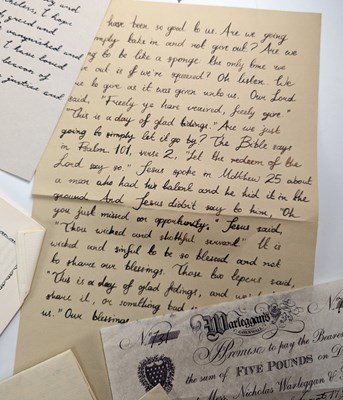 and
I hope
greed and
vanquished and
I have loved
beacon of
justice and
have been so good to us. Are we going
simply take in and not give out? Are we
ng to be like a sponge the only time we
out is if we're squeezed? Oh listen. We
to give as it was given unto us. Our Lord
said, "Freely ye have received, freely give."
"This is a day of glad tidings." Are we just
going to simply let it go by? The Bible says
in Psalm 101, verse 2, "Let the redeem of the
Lord say so." Jesus spoke in Matthew 25 about
a man who had his talent and he hid it in the
ground. And Jesus didn't say to him, "Oh
you just missed an opportunity." Jesus said,
"Thou wicked and slothful servant." It is
wicked and sinful to be so blessed and not
to share our blessings. Those two lepers said,
"This is a day of glad tidings, and
share it, or something bad
us." Our blessings
No 731
Warleggan
No
I Promise to pay the Bearer
the sum of FIVE POUNDS on D
Mess. Nicholas Warleggan C.